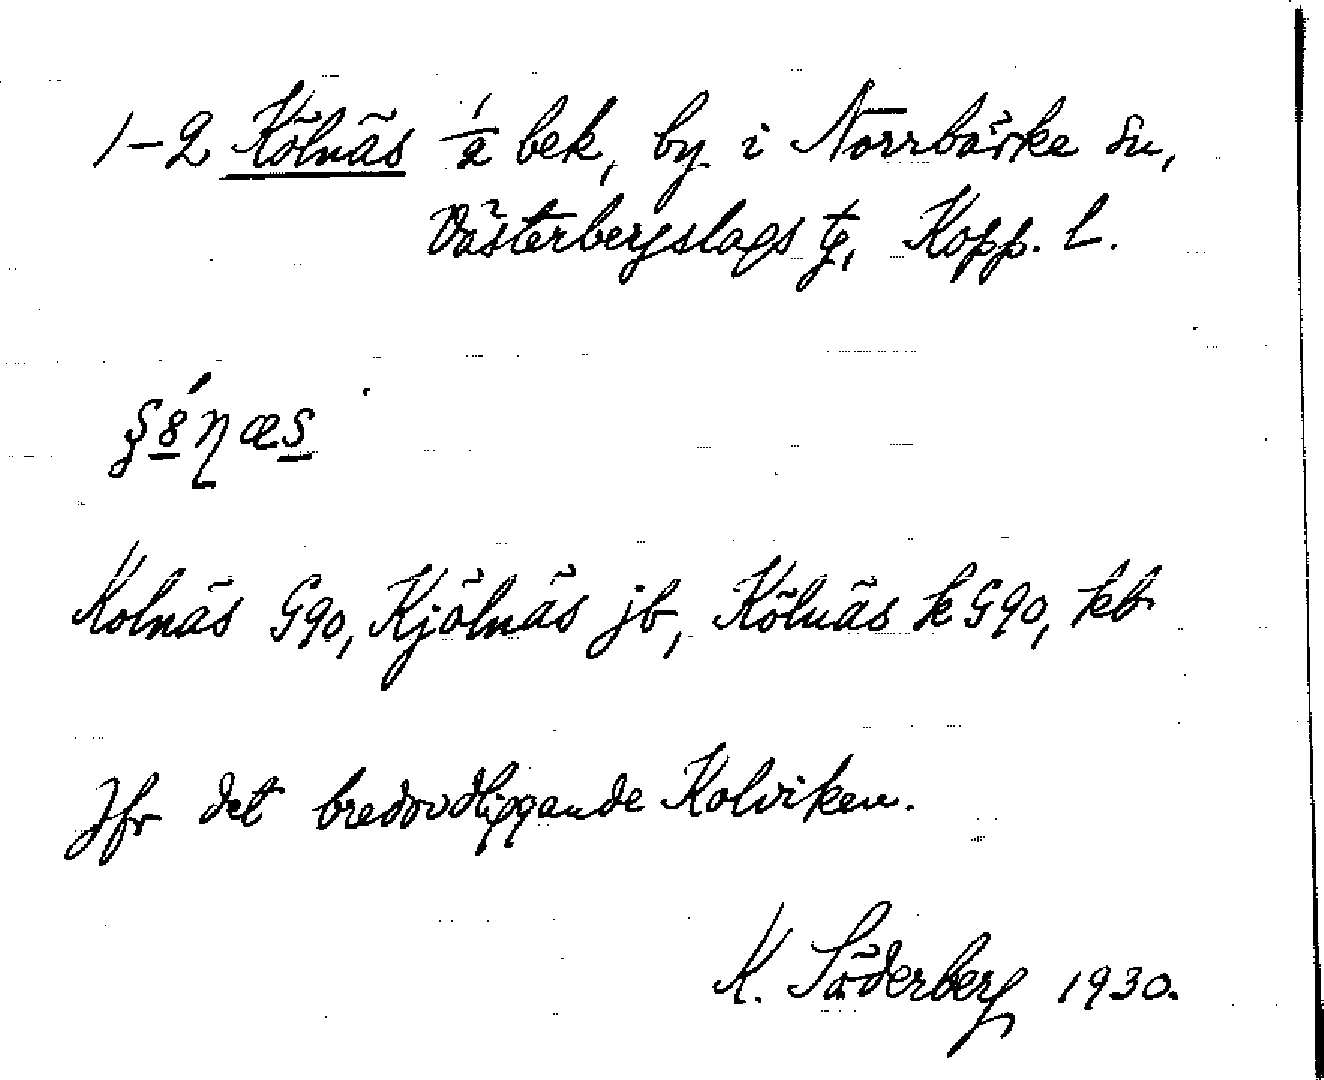 1-2 Kölnäs 1/2 bek, by i Norrbärke sn,
Västerbergslags tg, Kopp. L.
Kolnäs G90, Kjölnäs jb, Kölnäs k G90, kb
Jfr det bredvidliggande Kolviken.
K. Söderberg 1930.